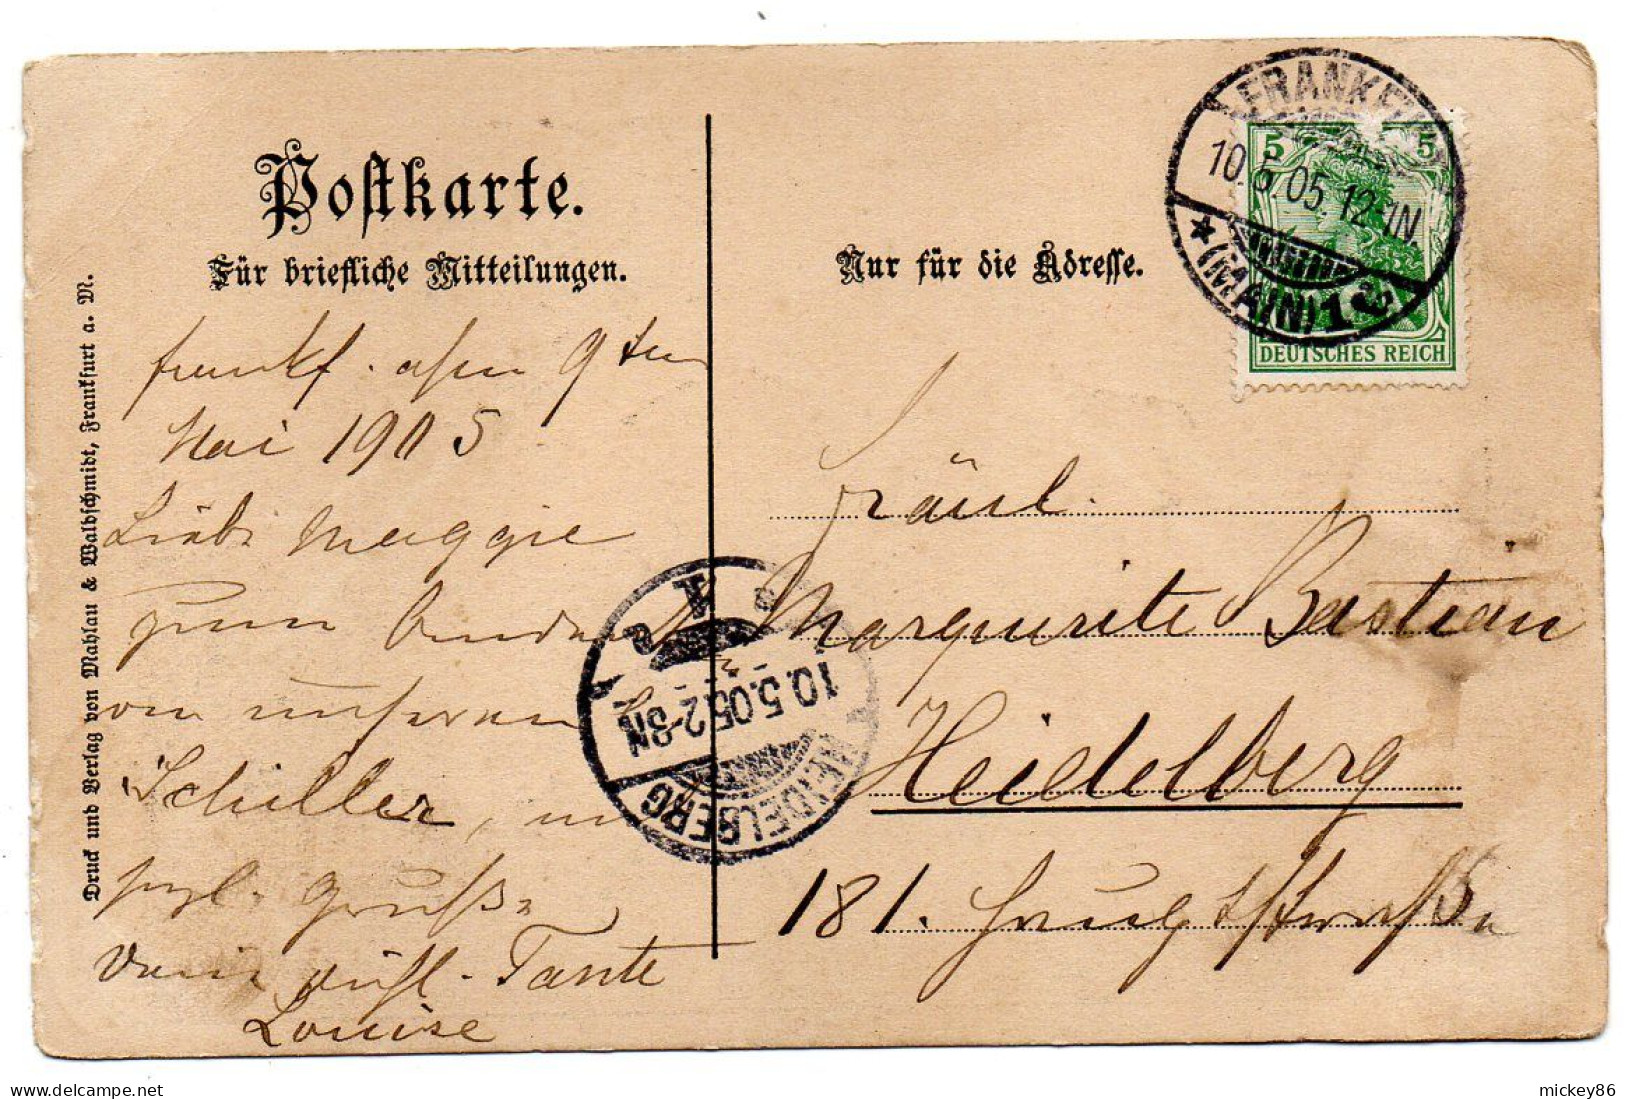 Postkarte.
Für briefliche Mitteilungen.
Nur für die Adresse.
Druck und Verlag von Mahlau & Waldschmidt, Frankfurt a. M.
Frankf. 9ten
Mai 1905
Liebe Maggie
zum Andenken
an unseren
Schiller, u
herzl. Grüße
Deine Tante
Louise
Fräul.
Marguerite Bastian
Heidelberg
181. Hauptstraße
FRANKFURT
10.5.05.12-1N.
* (MAIN) 1
5 5
DEUTSCHES REICH
HEIDELBERG
10.5.05.2-3N
mickey86